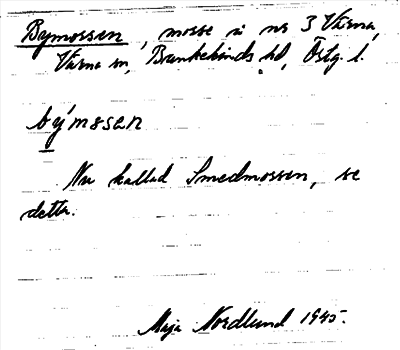 Bymossen, mosse i nr 3 Värna,
Värna sn, Bankekinds hd, Östg. l.
by´mɷsen
Nu kallad Smedmossen, se
detta.
Maja Nordlund 1945.